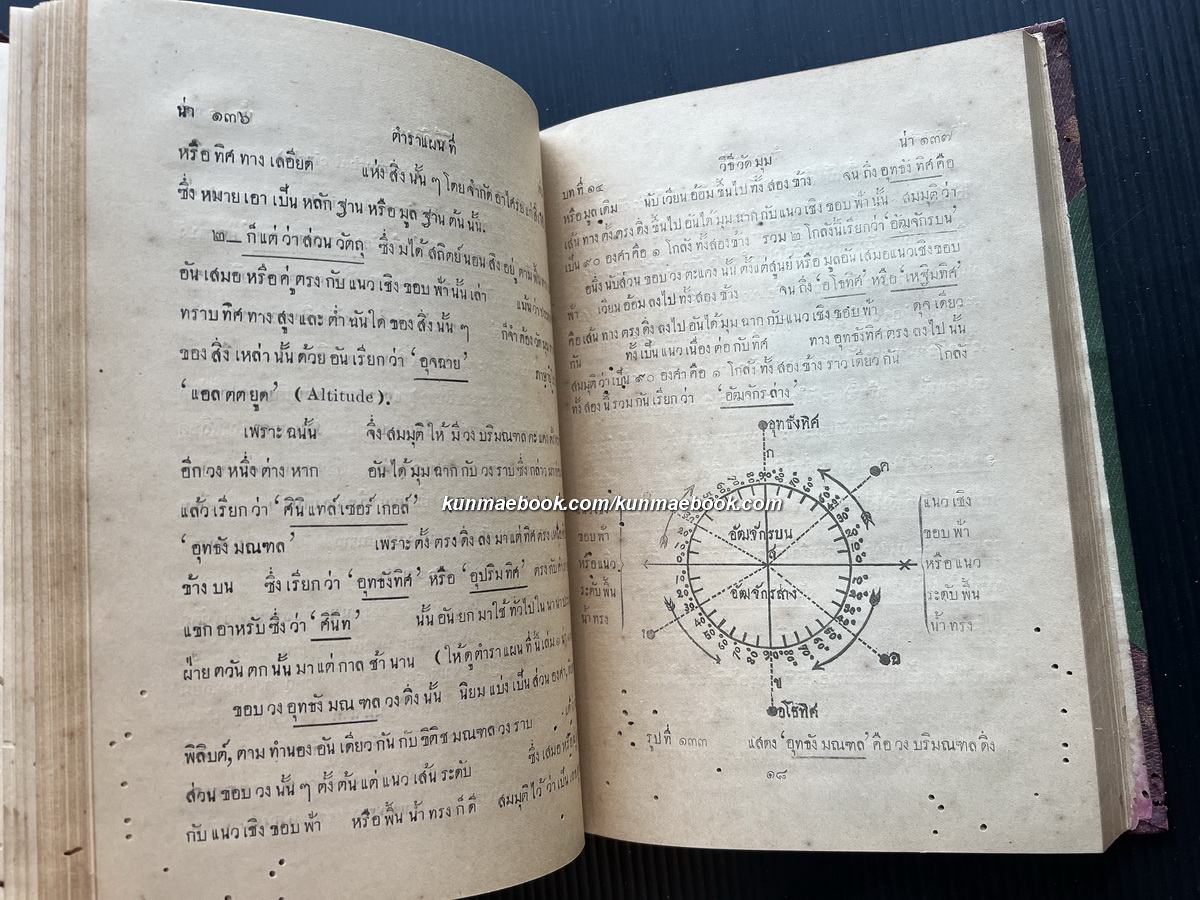 น่า ๑๓๖
ตำราแผนที่
หรือ ทิศ ทาง เลอียด แห่ง สิ่ง นั้น ๆ โดย จำกัด อาไศรย
ซึ่ง หมาย เอา เป็น หลัก ฐาน หรือ มูล ฐาน ต้น นั้น.
๒_ ก็ แต่ ว่า ส่วน วัตถุ ซึ่ง มิได้ สถิตย์ นอน สิง อยู่ ตาม พื้น
อัน เสมอ หรือ คู่ ตรง กับ แนว เชิง ขอบ ฟ้า นั้น เล่า
ทราบ ทิศ ทาง สูง และ ต่ำ นั้น ใด ของ สิ่ง นั้น ๆ ก็ จำ ต้อง วัด
ของ สิ่ง เหล่า นั้น ด้วย อัน เรียก ว่า ‘อุจฉาย’
‘แอล ตต ยูด’ (Altitude).
เพราะ ฉนั้น จึ่ง สมมุติ ให้ มี วง บริมณฑล ตะ แคง
อีก วง หนึ่ง ต่าง หาก อัน ได้ มุม ฉาก กับ วง ราบ ซึ่ง กล่าว
แล้ว เรียก ว่า ‘ศินิ แทล์ เซอร์ เกอล์’
‘อุทธัง มณฑล’ เพราะ ตั้ง ตรง ดิ่ง ลง มา แต่ ทิศ ตรง
ข้าง บน ซึ่ง เรียก ว่า ‘อุทธังทิศ’ หรือ ‘อุปริมทิศ’ ตรง กับ
แขก อาหรับ ซึ่ง ว่า ‘ศินิท’ นั้น อัน ยก มา ใช้ ทั่ว ไป ใน
ฝ่าย ตวัน ตก นั้น มา แต่ กาล ช้า นาน (ให้ ดู ตำรา แผน ที่ นี้ เล่ม ๑
ขอบ วง อุทธัง มณ ฑล วง ดิ่ง นั้น นิยม แบ่ง เป็น ส่วน องศา,
พิลิบด์, ตาม ทำนอง อัน เดียว กัน กับ ขิติช มณฑล วง ราบ
ส่วน ขอบ วง นั้น ๆ ตั้ง ต้น แต่ แนว เส้น ระดับ ซึ่ง เสมอ หรือ
กับ แนว เชิง ขอบ ฟ้า หรือ พื้น น้ำ ทรง ก็ ดี สมมุติ ไว้ ว่า เป็น
น่า ๑๓๗
วิธี วัด มุม
บท ที่ ๑๔
หรือ มูล เดิม นับ เวียน อ้อม ขึ้น ไป ทั้ง สอง ข้าง จน ถึง อุทธัง ทิศ คือ
เส้น ทาง ตั้ง ตรง ดิ่ง ขึ้น ไป อัน ได้ มุม ฉาก กับ แนว เชิง ขอบ ฟ้า นั้น สมมุติ ว่า
เป็น ๙๐ องศา คือ ๑ โกลัง ทั้ง สอง ข้าง รวม ๒ โกลัง นี้ เรียก ว่า ‘อัฒจักร บน’
อนึ่ง นับ ส่วน ขอบ วง ตะแคง นั้น ตั้ง แต่ สูนย์ หรือ มูล อัน เสมอ แนว เชิง ขอบ
ฟ้า เวียน อ้อม ลง ไป ทั้ง สอง ข้าง จน ถึง ‘อโธทิศ’ หรือ ‘เหฐิมทิศ’
คือ เส้น ทาง ตรง ดิ่ง ลง ไป อัน ได้ มุม ฉาก กับ แนว เชิง ขอบ ฟ้า ดุจ เดียว
กัน ทั้ง เป็น แนว เนื่อง ต่อ กับ ทิศ ทาง อุทธังทิศ ตรง ลง ไป นั้น
สมมุติ ว่า เป็น ๙๐ องศา คือ ๑ โกลัง ทั้ง สอง ข้าง ราว เดียว กัน โกลัง
ทั้ง สอง นี้ รวม กัน เรียก ว่า ‘อัฒจักร ล่าง’
อุทธังทิศ
ก
ค
อัฒจักรบน
อัฒจักรล่าง
แนว เชิง
ขอบ ฟ้า
หรือ แนว
ระดับ พื้น
น้ำ ทรง
แนว เชิง
ขอบ ฟ้า
หรือ แนว
ระดับ พื้น
น้ำ ทรง
ข
อโธทิศ
รูป ที่ ๑๓๓ แสดง ‘อุทธัง มณฑล’ คือ วง บริมณฑล ดิ่ง
๑๘
kunmaebook.com/kunmaebook.com